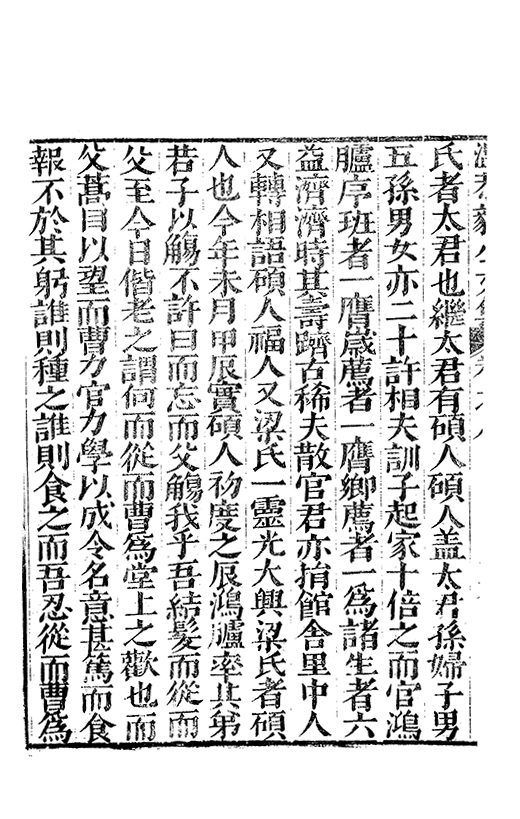 氏者太君也繼太君有碩人碩人盖太君孫婦子男
五孫男女亦二十許相夫訓子起家十倍之而官鴻
臚序班者一膺歲薦者一膺鄉薦者一爲諸生者六
益濟濟時其壽躋古稀夫散官君亦捐館舍里中人
又轉相語碩人福人又梁氏一靈光大興梁氏者碩
人也今年未月甲辰實碩人初度之辰鴻臚率其弟
若子以觴不許曰而忘而父觴我乎吾結髮而從而
父至今日偕老之謂何而從而曹爲堂上之歡也而
父蒿目以望而曹力官力學以成令名意甚篤而食
報不於其躬誰則種之誰則食之而吾忍從而曹爲